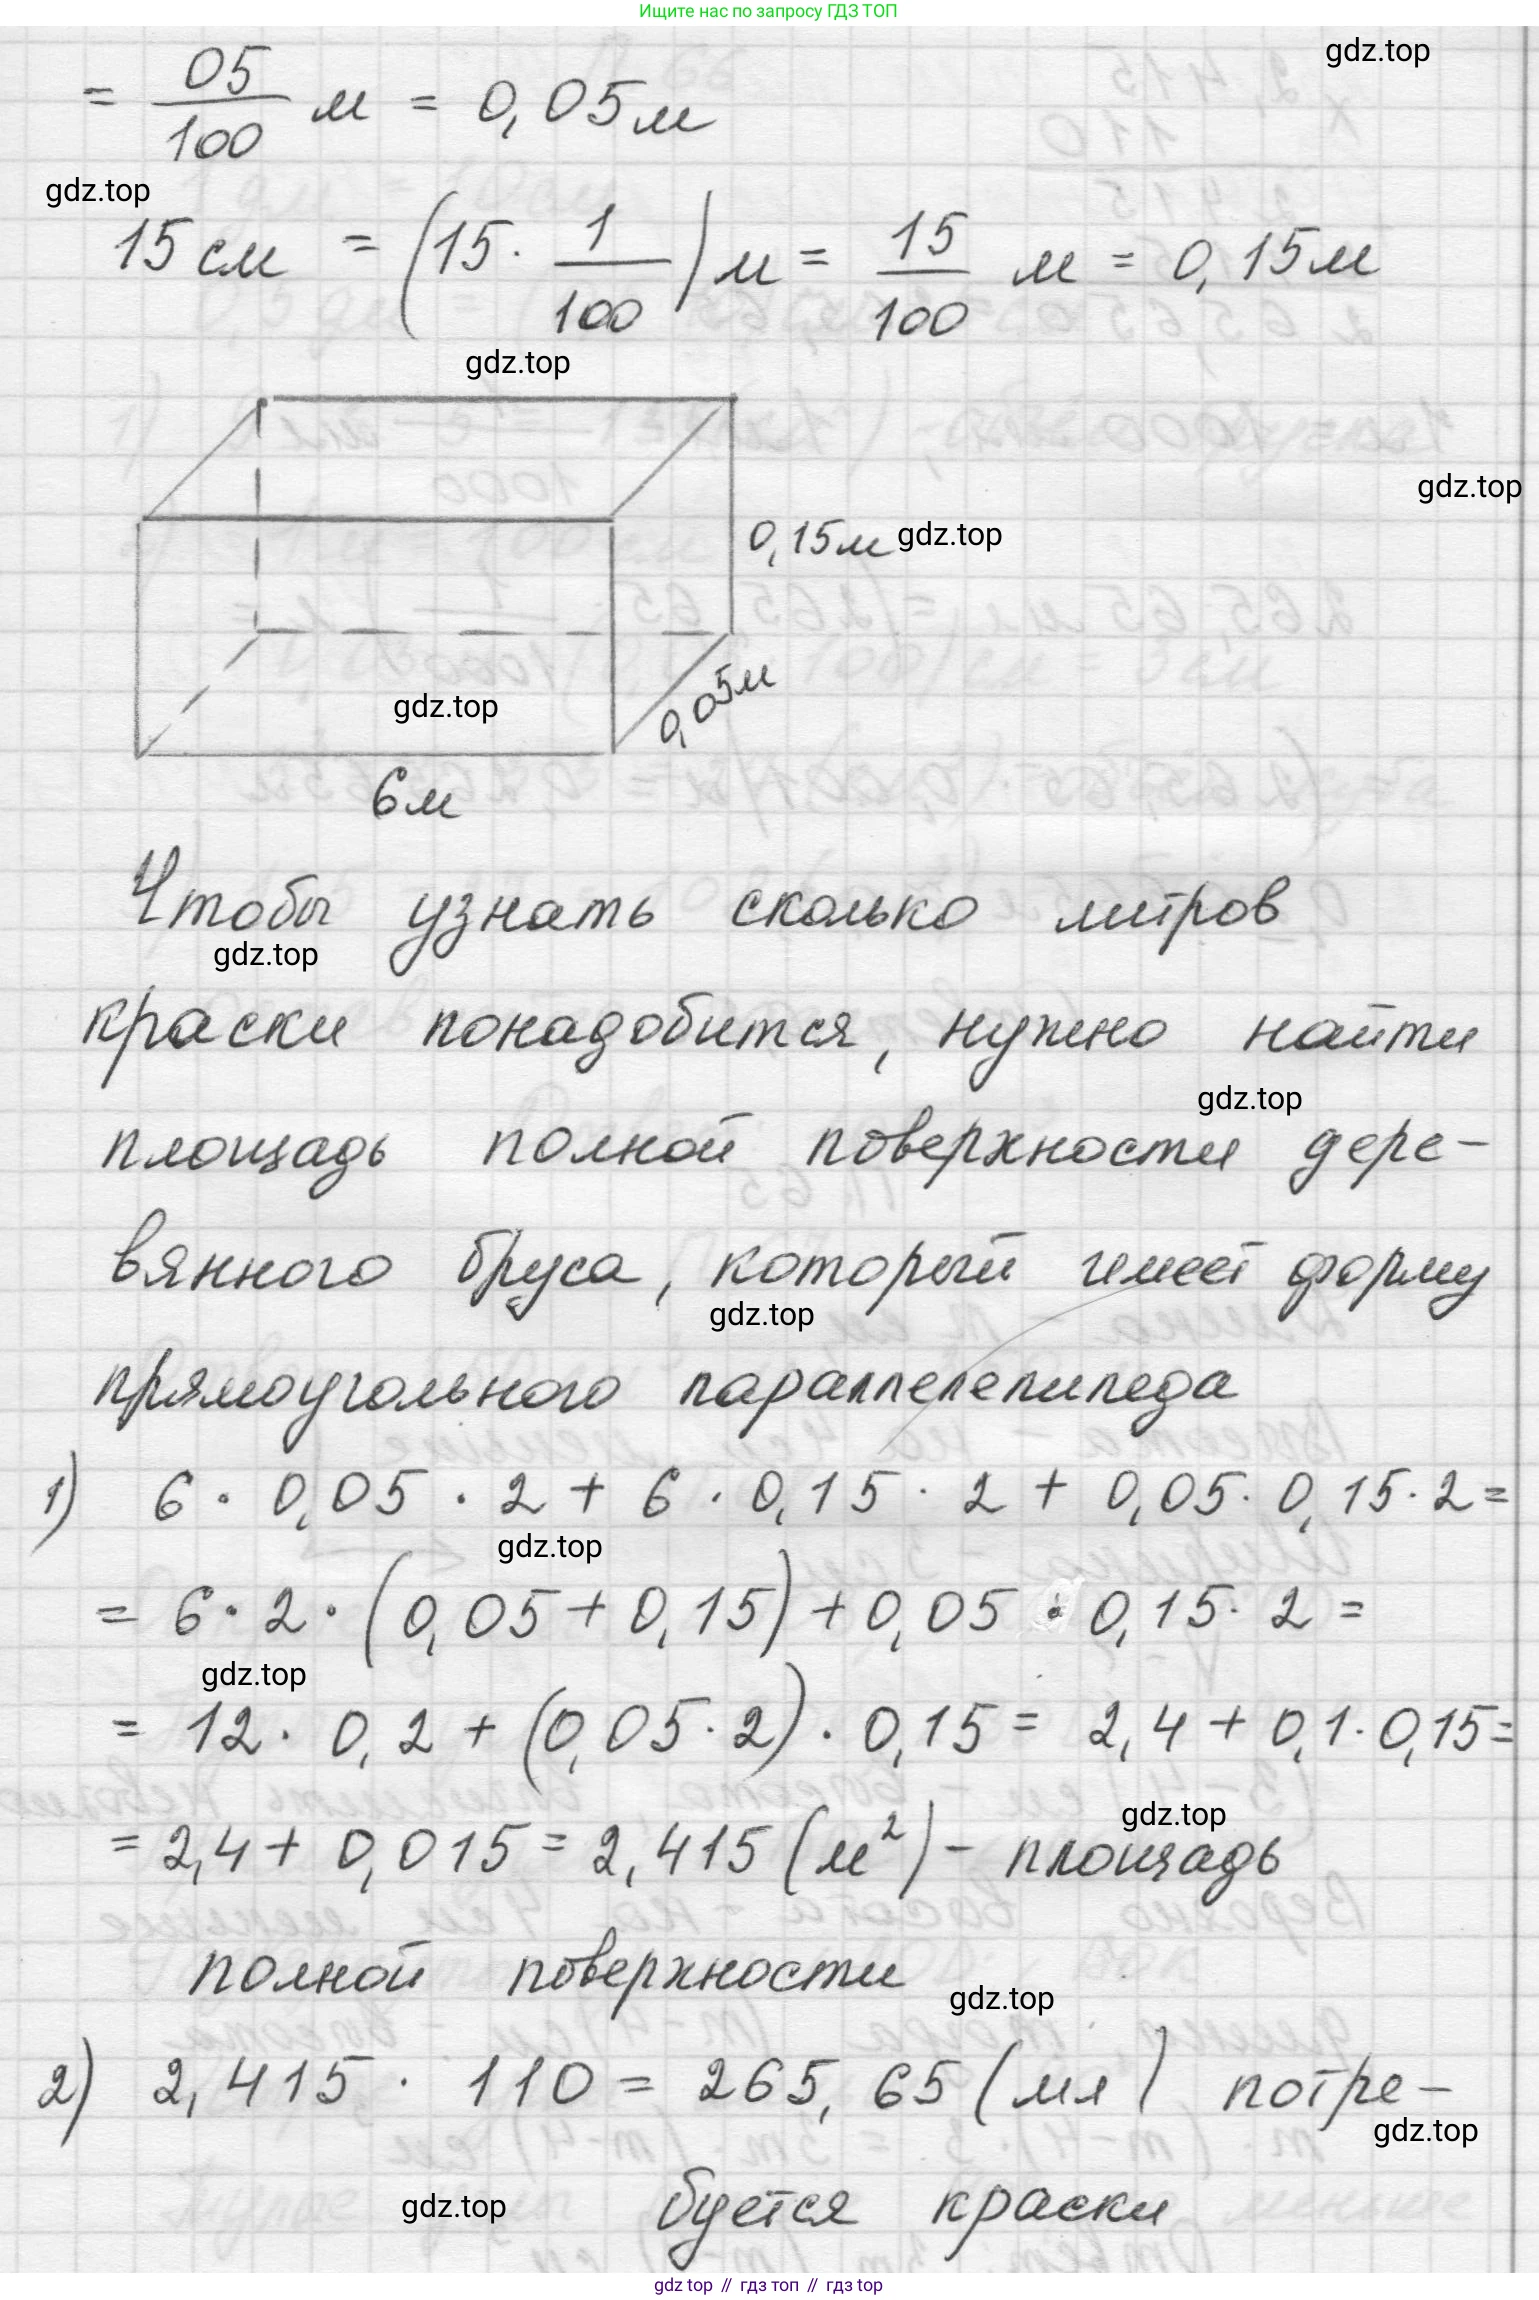 Ищите нас по запросу ГДЗ ТОП
gdz.top
= 05/100 м = 0,05м
gdz.top
15 см = (15 · 1/100) м = 15/100 м = 0,15м
gdz.top
gdz.top
0,15м gdz.top
0,05м
gdz.top
6м
Чтобы узнать сколько литров
gdz.top
краски понадобится, нужно найти
gdz.top
площадь полной поверхности дере-
вянного бруса, который имеет форму
gdz.top
прямоугольного параллелепипеда
1) 6 · 0,05 · 2 + 6 · 0,15 · 2 + 0,05 · 0,15 · 2 =
gdz.top
= 6 · 2 · (0,05 + 0,15) + 0,05 · 0,15 · 2 =
gdz.top
= 12 · 0,2 + (0,05 · 2) · 0,15 = 2,4 + 0,1 · 0,15 =
gdz.top
= 2,4 + 0,015 = 2,415 (м²) - площадь
полной поверхности
gdz.top
2) 2,415 · 110 = 265,65 (мл) потре-
gdz.top
буется краски
gdz.top
gdz.top // гдз топ // гдз.top